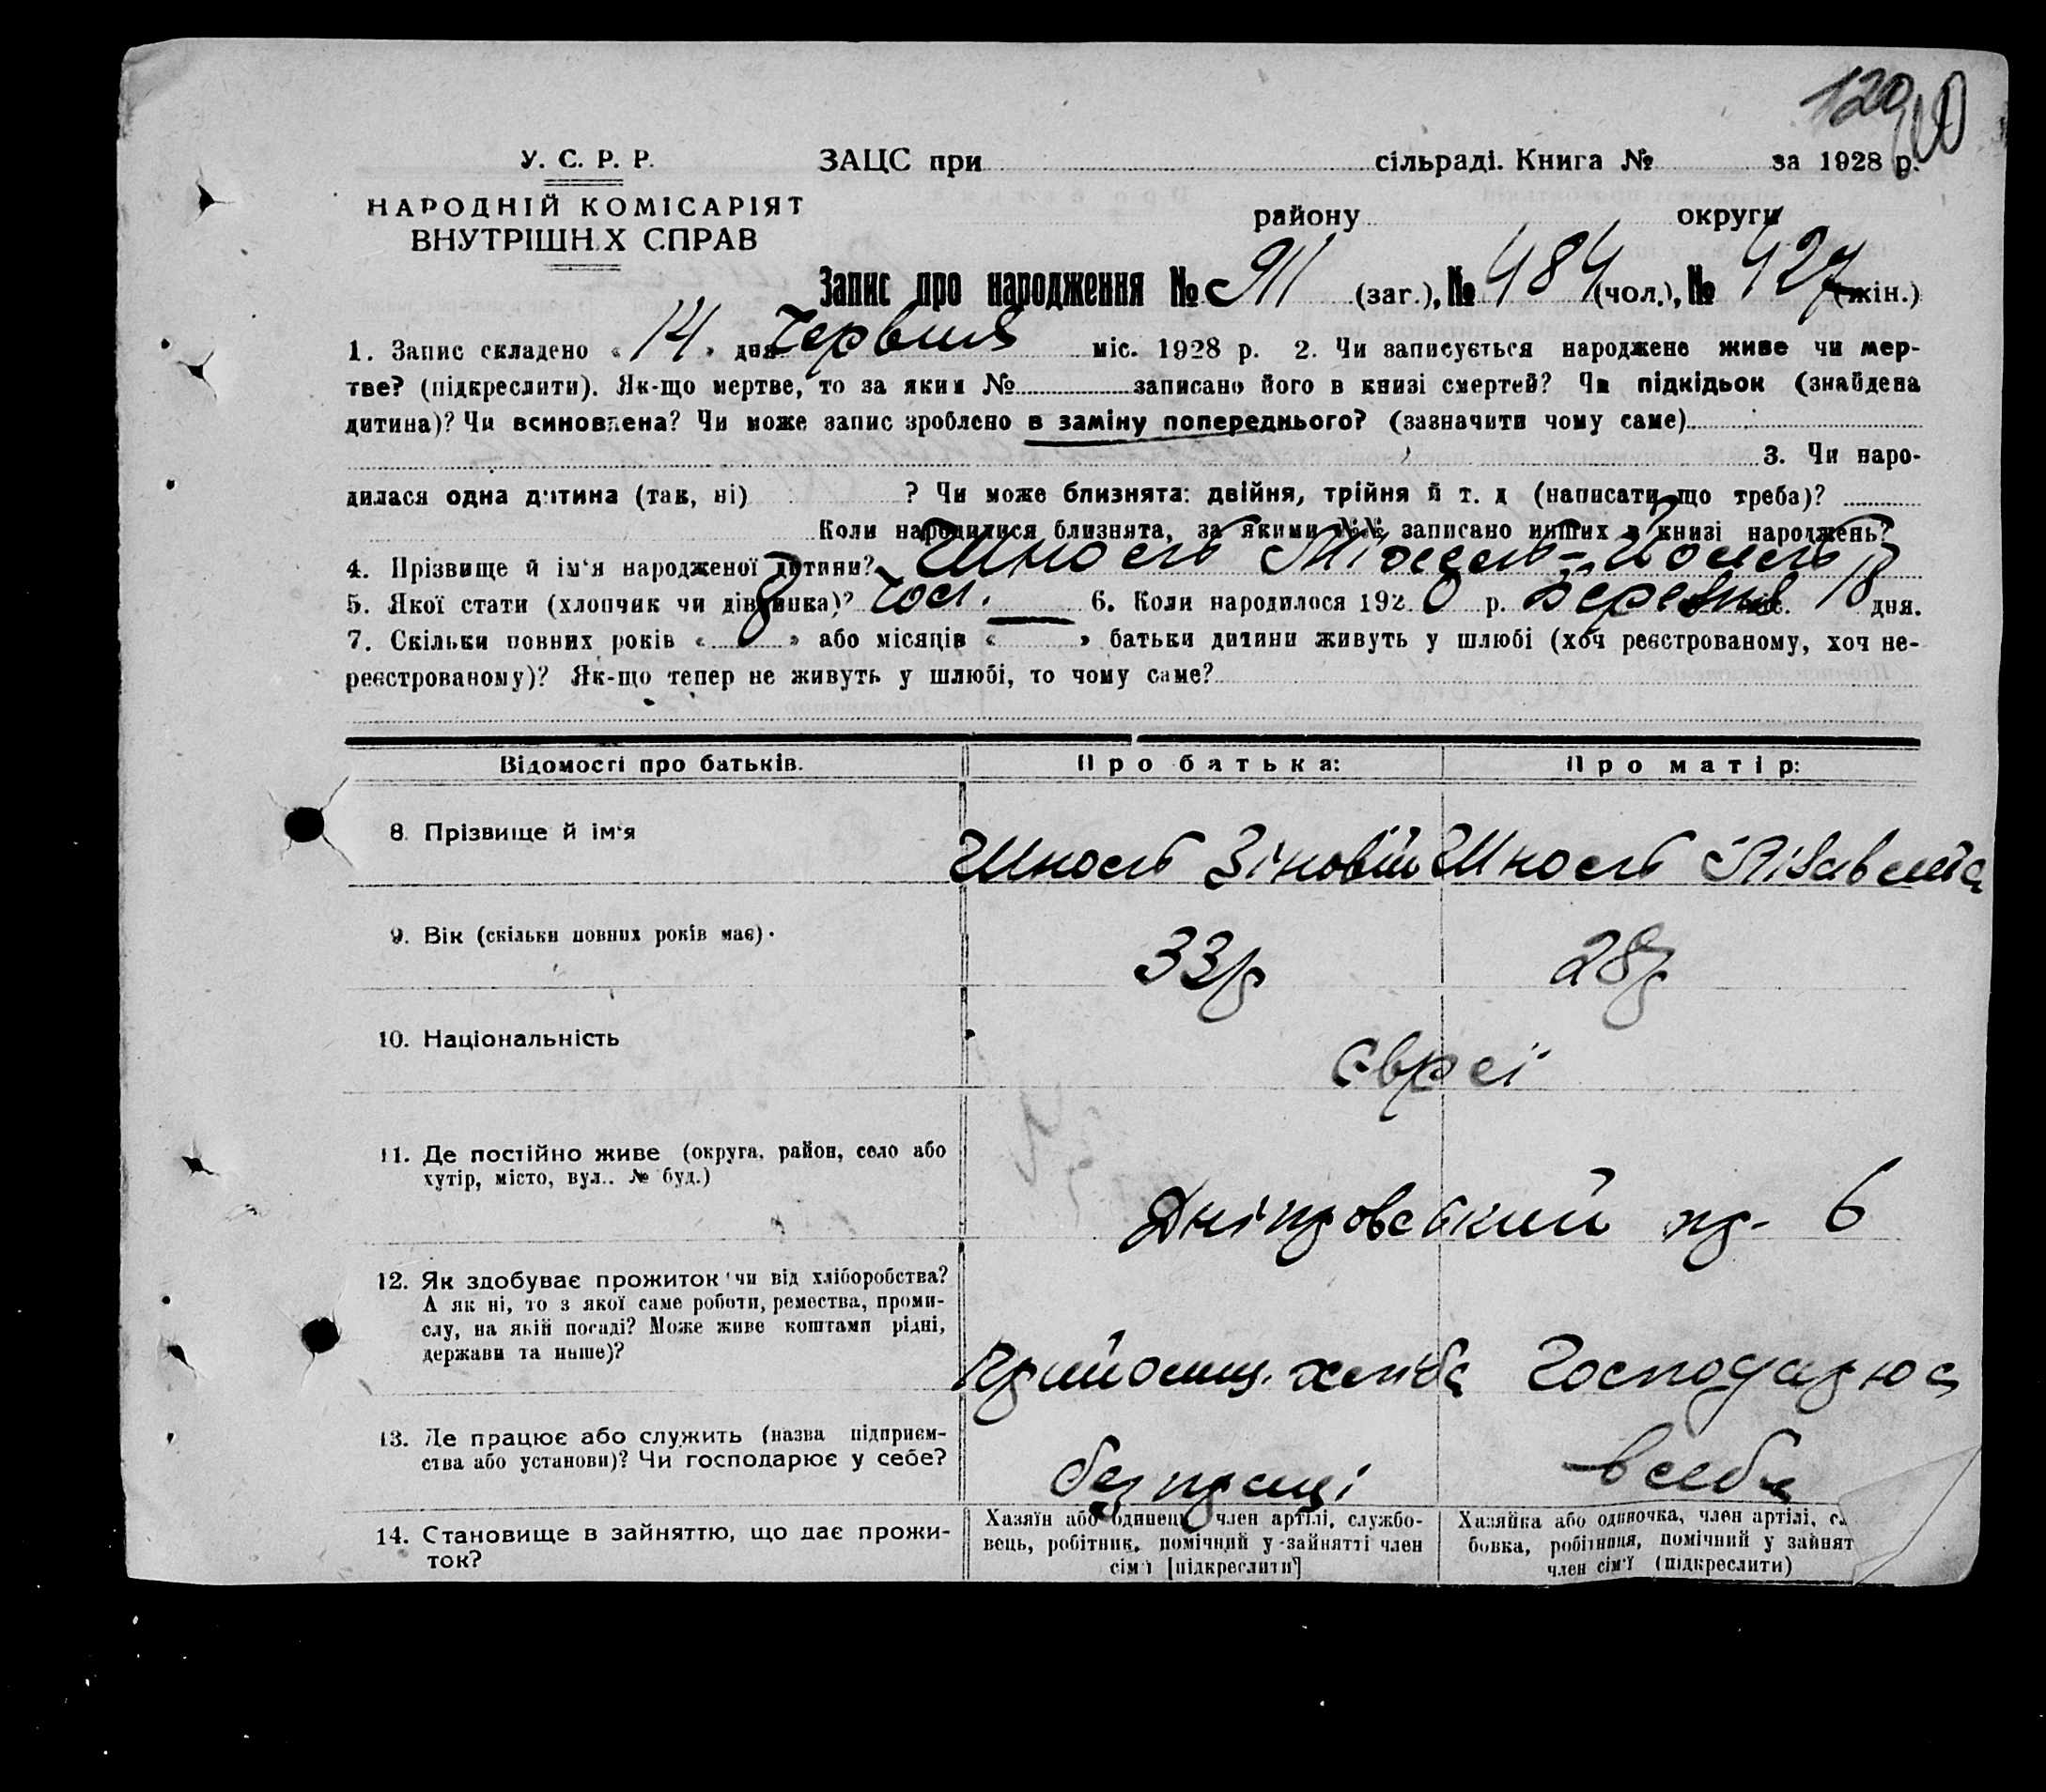 120
У. С. Р. Р.
ЗАЦС при сільраді. Книга № за 1928 р.
НАРОДНІЙ КОМІСАРІЯТ
району округи
ВНУТРІШН.Х СПРАВ
Запис про народження № 911 (заг.), № 484 (чол.), № 427 (жін.)
1. Запис складено « 14 » дня Червня міс. 1928 р. 2. Чи записується народжене живе чи мер-
тве? (підкреслити). Як-що мертве, то за яким № записано його в книзі смертей? Чи підкідьок (знайдена
дитина)? Чи всиновлена? Чи може запис зроблено в заміну попереднього? (зазначити чому саме)
3. Чи наро-
дилася одна дитина (так, ні) ? Чи може близнята: двійня, трійня й т. д (написати що треба)?
Коли народилися близнята, за якими №№ записано инших в книзі народжень?
4. Прізвище й ім'я народженої дитини?
5. Якої стати (хлопчик чи дівчинка)? чол. 6. Коли народилося 192 р. Березня міс. 18 дня.
7. Скільки повних років « 8 » або місяців « » батьки дитини живуть у шлюбі (хоч реєстрованому, хоч не-
реєстрованому)? Як-що тепер не живуть у шлюбі, то чому саме?
Відомості про батьків. Про батька: Про матір:
8. Прізвище й ім'я
Зіновій
9. Вік (скільки повних років має).
33р 28р
10. Національність
Євреї
11. Де постійно живе (округа, район, село або
хутір, місто, вул.. № буд.)
Дніпровський пр. 6
12. Як здобуває прожиток чи від хліборобства?
А як ні, то з якої саме роботи, ремества, проми-
слу, на якій посаді? Може живе коштами рідні,
держави та инше)?
хліба Господарює
13. Де працює або служить (назва підприєм-
ства або установи)? Чи господарює у себе?
без праці в себе
14. Становище в зайняттю, що дає прожи-
ток?
Хазяїн або одинець, член артілі, службо-
вець, робітник, помічний у зайнятті член
сім'ї [підкреслити]
Хазяйка або одиночка, член артілі,
бовка, робітниця, помічний у зайнят
член сім'ї (підкреслити)